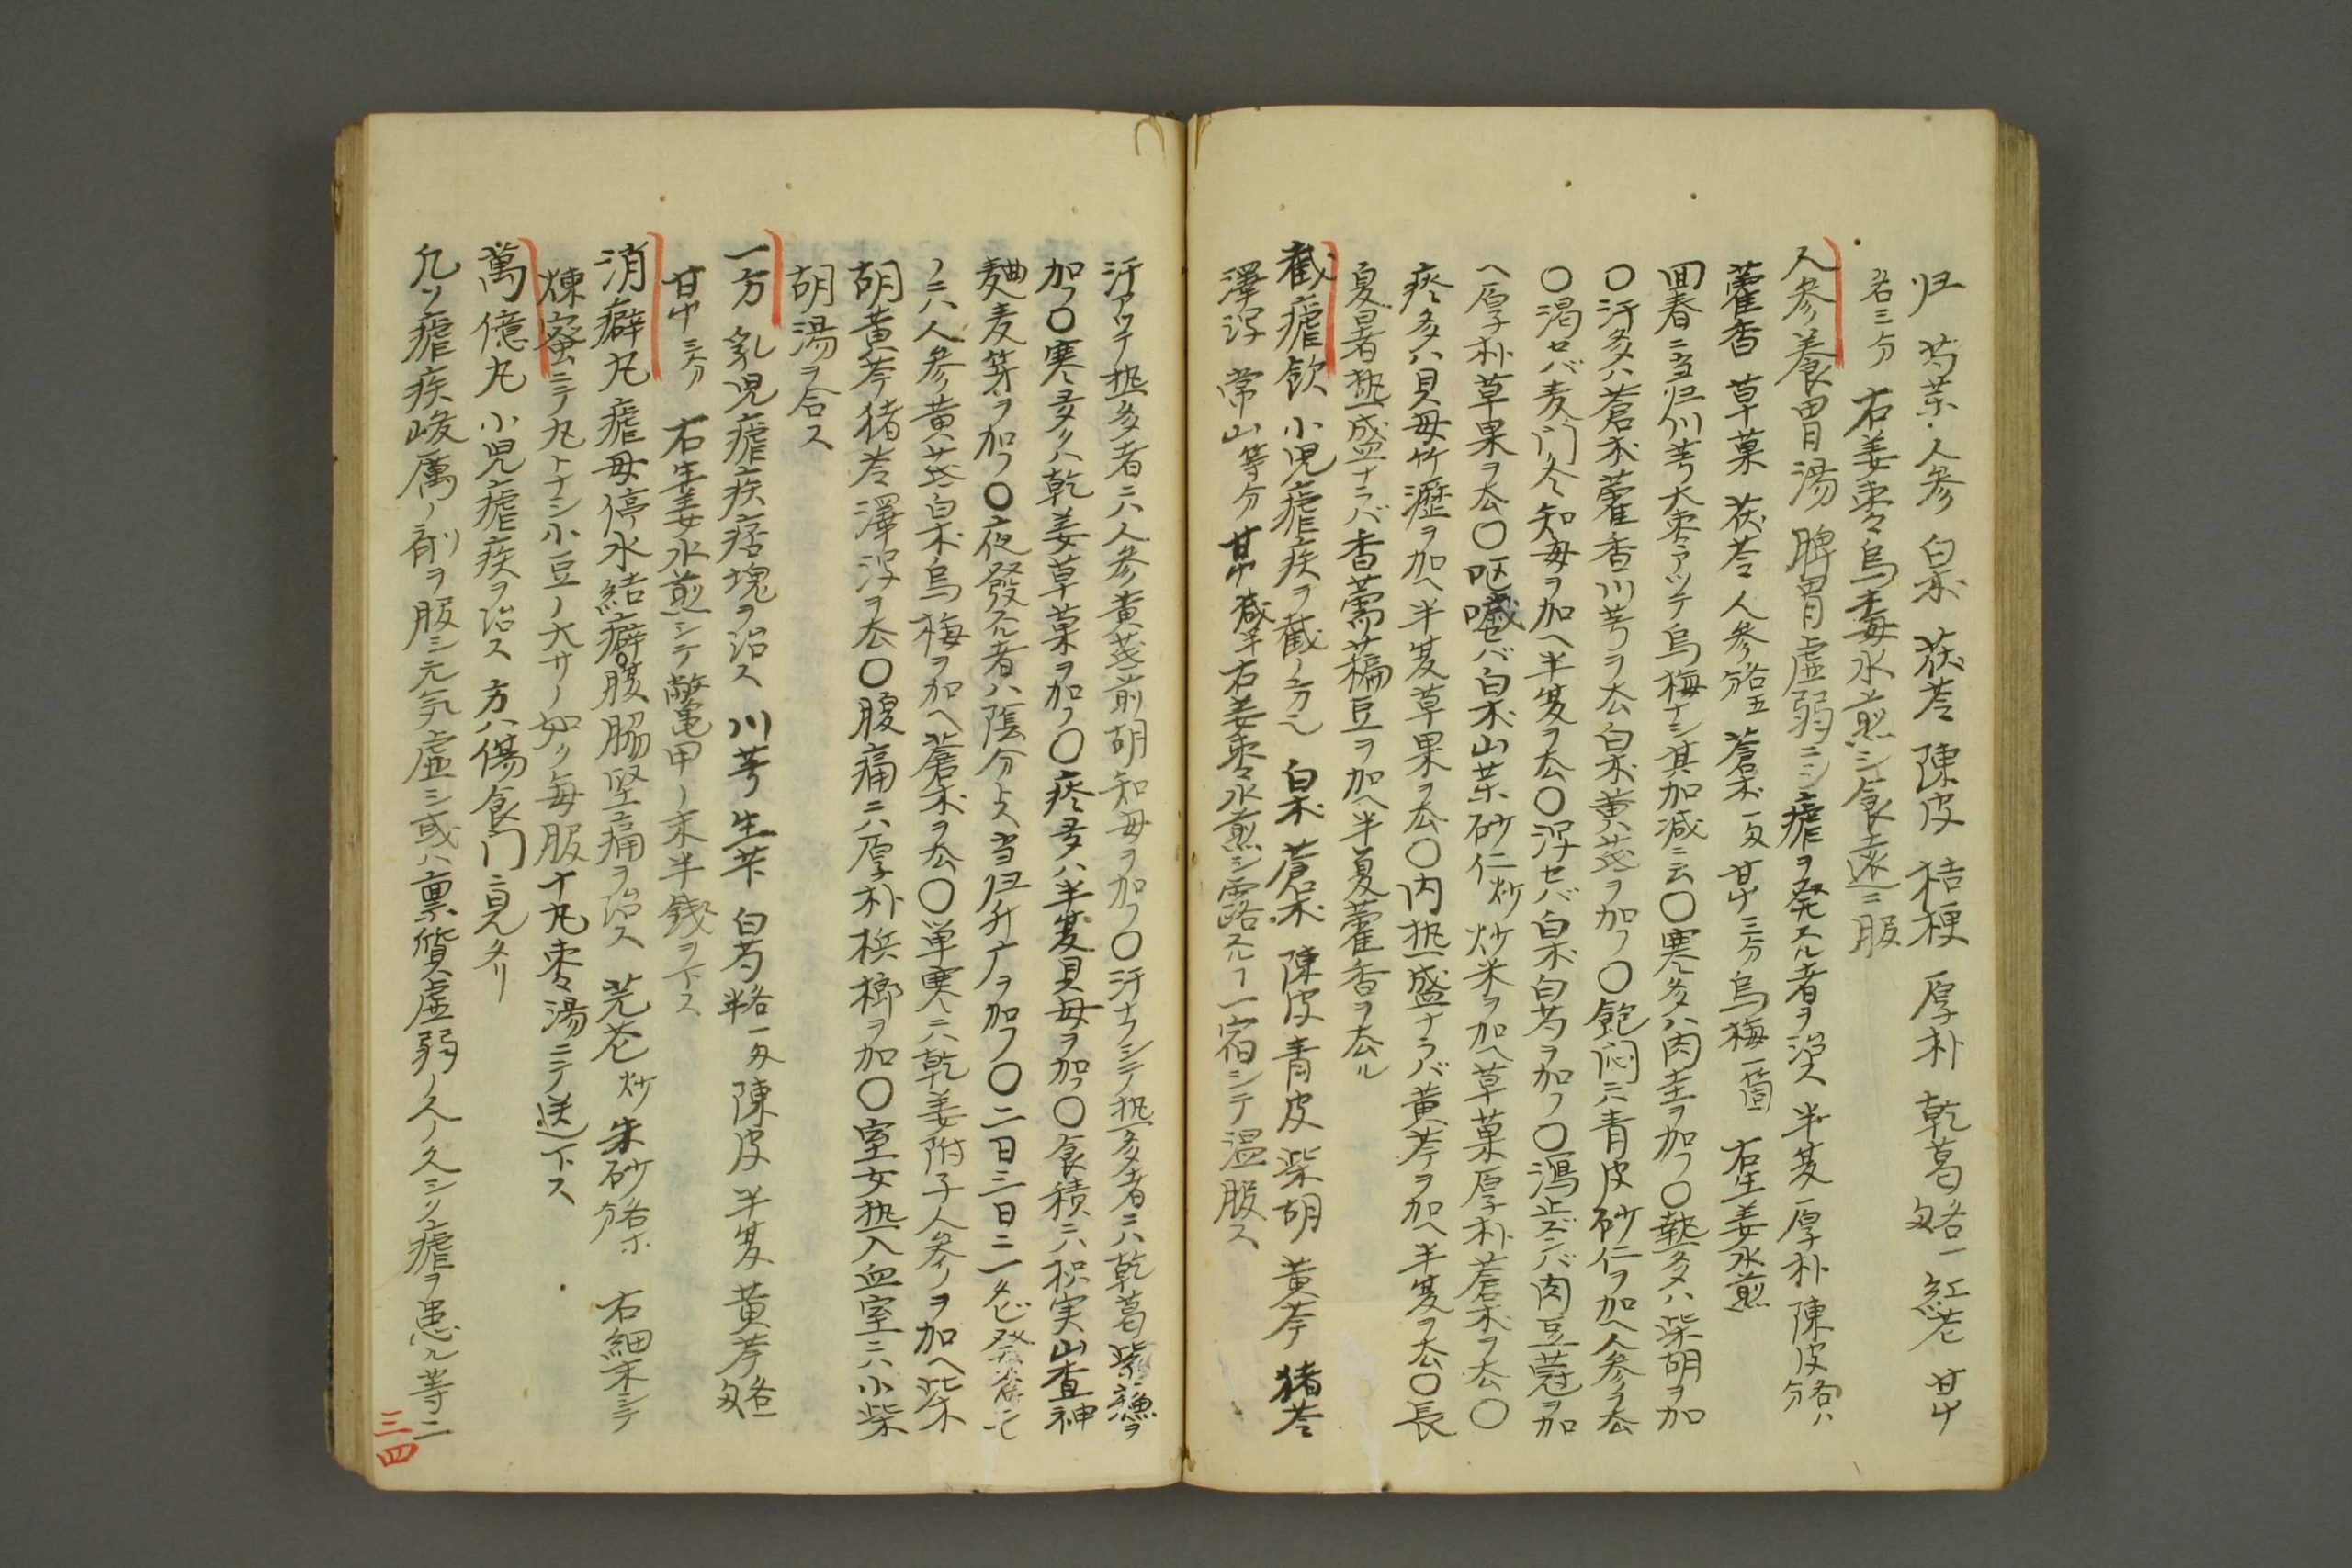 归 芍薬 人参 白朮 茯苓 陳皮 桔梗 厚朴 乾葛各一匁 紅花 甘艸
各三分 右姜棗烏梅水煎シ食遠ニ服
人参養胃湯 脾胃虚弱ニシ瘧ヲ発スル者ヲ治ス 半夏 厚朴 陳皮各八分
藿香 草菓 茯苓 人参各五分 蒼朮一匁 甘艸三分 烏梅一箇 右生姜水煎
回春ニ当归川芎大棗アツテ烏梅ナシ其加減ニ云〇寒多ハ肉圭ヲ加フ〇熱多ハ柴胡ヲ加
〇汗多ハ蒼朮藿香川芎ヲ去白朮黄芪ヲ加フ〇飽悶ニハ青皮砂仁ヲ加ヘ人参ヲ去
〇渇セバ麦门冬知毎ヲ加ヘ半夏ヲ去〇浮セバ白朮白芍ヲ加フ〇瀉止ズンバ肉豆蔲ヲ加
ヘ厚朴草果ヲ去〇呕噦セバ白朮山薬砂仁炒 炒米ヲ加ヘ草菓厚朴蒼朮ヲ去〇
痰多ハ貝毎竹瀝ヲ加ヘ半夏草果ヲ去〇内热盛ナラバ黄芩ヲ加ヘ半夏ヲ去〇長
夏暑热盛ナラバ香薷萹豆ヲ加ヘ半夏藿香ヲ去ル
截瘧飲 小児瘧疾ヲ截ノ方也 白朮 蒼朮 陳皮 青皮 柴胡 黄芩 猪苓
澤泻 常山等分 甘艸減半 右姜棗水煎シ露スルヿ一宿シテ温服ス
汗アツテ热多者ニハ人参黄芪前胡知毎ヲ加フ〇汗ナフシテ热多者ニハ乾葛紫蘓ヲ
加フ〇寒多クハ乾姜草菓ヲ加フ〇痰多ハ半夏貝毎ヲ加フ〇食積ニハ枳実山査神
麯麦芽ヲ加フ〇夜發スル者ハ陰分トス当归升广ヲ加フ〇二日三日ニ一タビ發者モ
ノニハ人参黄芪白朮烏梅ヲ加ヘ蒼朮ヲ去〇单寒ニハ乾姜附子人参ヲ加ヘ柴
胡黄芩猪苓澤泻ヲ去〇腹痛ニハ厚朴梹榔ヲ加〇室女热入血室ニハ小柴
胡湯ヲ合ス
一方 乳児瘧疾痞塊ヲ治ス 川芎 生芐 白芍各一匁半 陳皮 半夏 黄芩各一匁
甘艸三分 右生姜水煎シテ鼈甲ノ末半錢ヲ下ス
消癖丸 瘧毋停水結癖腹脇堅痛ヲ治ス 芫花炒 朱砂各等分 右細末シテ
煉蜜ニテ丸トナシ小豆ノ大サノ如ク毎服十丸棗湯ニテ送下ス
萬億丸 小児瘧疾ヲ治ス 方ハ傷食门ニ見タリ
凢ソ瘧疾峻厲ノ剤ヲ服シ元気虚シ或ハ禀質虚弱ノ人久シク瘧ヲ患ル等ニ
三四